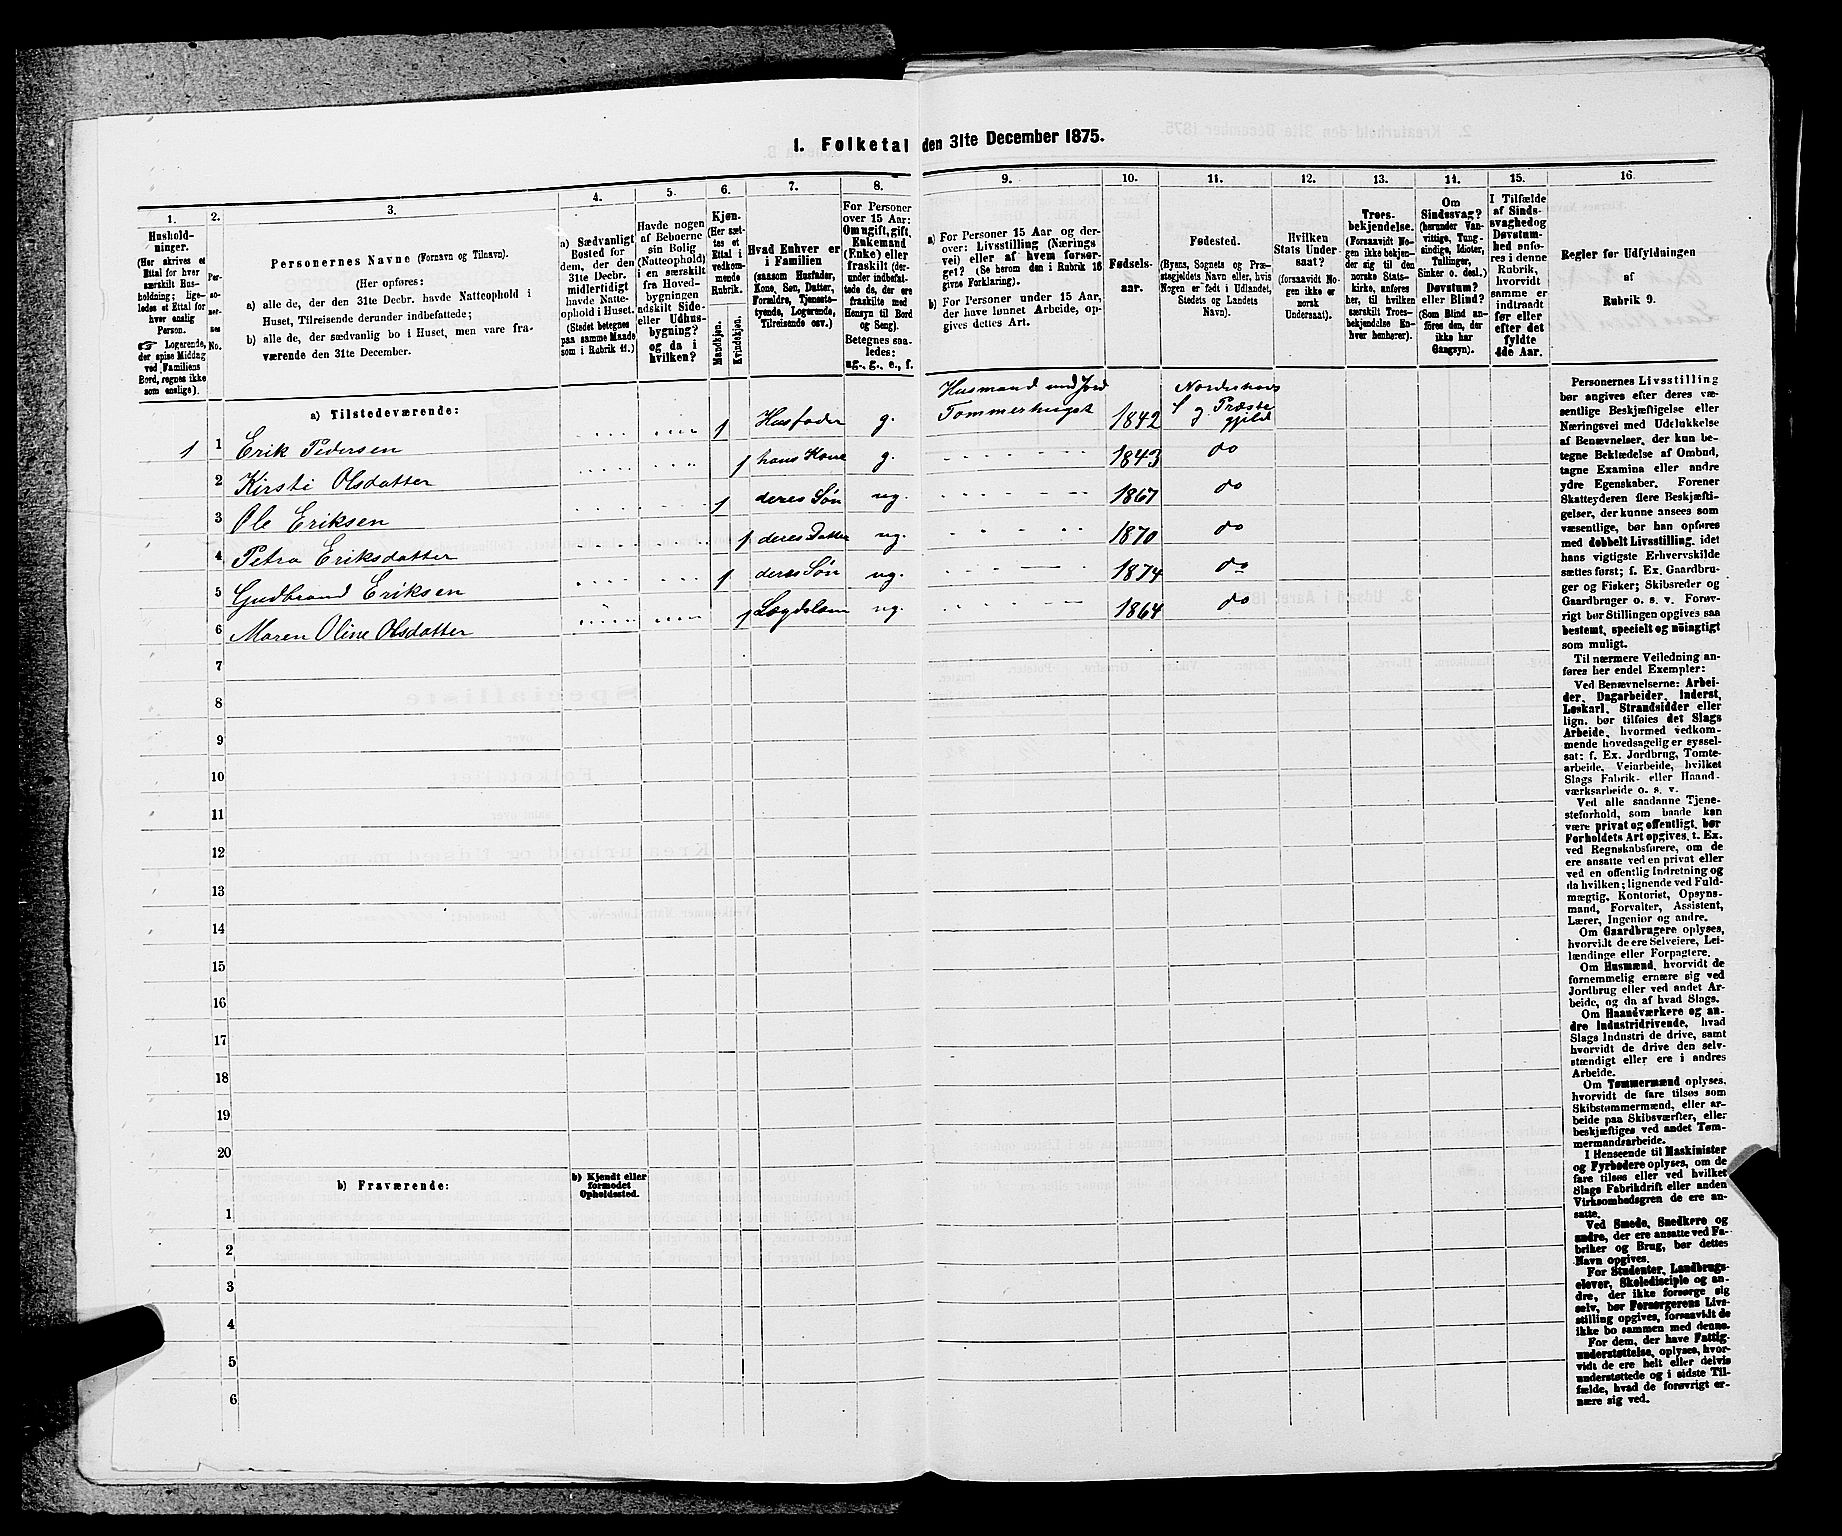 1. Folketal den 31te December 1875.
1.
Husholdninger.
(Her skrives et
Ettal for hver
særskilt Husholdning; ligeledes
et Ettal for
hver enslig
Person.
☞ Logerende,
der spise Middag
ved Familiens
Bord, regnes ikke
som enslige).
2.
Personernes
No.
3.
Personernes Navne (Fornavn og Tilnavn).
(Her opføres:
a) alle de, der den 31te Decbr. havde Natteophold i
Huset, Tilreisende derunder indbefattede;
b) alle de, der sædvanlig bo i Huset, men vare fraværende
den 31te December.
4.
a) Sædvanligt
Bosted for
dem, der den
31te Decbr.
midlertidigt
havde Natteophold
i Huset.
(Stedet betegnes
paa samme Maade
som i Rubrik 11.)
5.
Havde nogen
af Beboerne
sin Bolig
(Natteophold)
i en særskilt
fra Hovedbygningen
adskilt Side-
eller Udhusbygning?
og da i
hvilken?
6.
Kjøn.
(Her sættes
et
Ettal i
vedkommende
Rubrik.
Mandkjøn.
Kvindekjøn.
7.
Hvad Enhver er
i Familien
(saasom Husfader,
Kone, Søn, Datter,
Forældre, Tjenestetyende,
Logerende,
Tilreisende osv.)
8.
For Personer
over 15 Aar:
Om ugift, gift,
Enkemand
(Enke) eller
fraskilt (derunder
indbefattede
de, der ere
fraskilte med
Hensyn til Bord
og Seng).
Betegnes saaledes:
ug., g., e., f.
9.
a) For Personer 15 Aar og derover:
Livsstilling (Næringsvei)
eller af hvem forsørget?
(Se herom den i Rubrik 16
givne Forklaring).
b) For Personer under 15 Aar,
der have lønnet Arbeide, opgives
dettes Art.
10.
Fødselsaar.
11.
Fødested.
(Byens, Sognets og Præstegjeldets
Navn eller, hvis
Nogen er født i Udlandet,
Stedets og Landets
Navn).
12.
Hvilken
Stats Undersaat?
(forsaavidt Nogen
ikke er
norsk
Undersaat).
13.
Troesbekjendelse.
(Forsaavidt Nogen
ikke bekjender
sig til den
norske Statskirke,
anføres
her, til hvilken
særskilt Troesbekjendelse
Enhver
henhører).
14.
Om
Sindssvag?
(herunder Vanvittige,
Tungsindige,
Idioter,
Tullinger,
Sinker o. desl.)
Døvstum?
eller Blind?
(Som Blind anføres
den, der
ikke har
Gangsyn).
15.
I Tilfælde
af Sindssvaghed
og
Døvstumhed
anføres
i denne
Rubrik,
hvorvidt
samme er
indtraadt
før eller
efter det
fyldte
4de Aar.
16.
Regler for Udfyldningen
af
Rubrik 9.
a) Tilstedeværende:
1 1 Erik Pedersen 1 Husfader g. Husmand med Jord Tømmerhugst 1842 Norderhovs S. og Præstegjeld
2 Kirsti Olsdatter 1 hans Kone g. 1843 do
3 Ole Eriksen 1 deres Søn ug. 1867 do
4 Petra Eriksdatter 1 deres Datter ug. 1870 do
5 Gudbrand Eriksen 1 deres Søn ug. 1874 do
6 Maren Oline Olsdatter 1 Lægdslem ug. 1864 do
7
8
9
10
11
12
13
14
15
16
17
18
19
20
b) Fraværende:
b) Kjendt eller
formodet
Opholdssted.
1
2
3
4
5
6
Personernes Livsstilling
bør angives efter deres væsentlige
Beskjæftigelse eller
Næringsvei med Udelukkelse
af Benævnelser, der kun betegne
Beklædelse af Ombud,
tagne Examina eller andre
ydre Egenskaber. Forener
Skatteyderen flere Beskjæftigelser,
der kunne ansees som
væsentlige, bør han opføres
med dobbelt Livsstilling, idet
hans vigtigste Erhvervskilde
sættes først; f. Ex. Gaardbruger
og Fisker; Skibsreder og
Gaardbruger o. s. v. Forøvrigt
bør Stillingen opgives saa
bestemt, specielt og nøiagtigt
som muligt.
Til nærmere Veiledning anføres
her endel Exempler:
Ved Benævnelserne: Arbeider,
Dagarbeider, Inderst,
Løskarl, Strandsidder eller
lign. bør tilføies det Slags
Arbeide, hvormed vedkommende
hovedsagelig er sysselsat:
f. Ex. Jordbrug, Tomtearbeide,
Veiarbeide, hvilket
Slags Fabrik- eller Haandværksarbeide
o. s. v.
Ved alle saadanne Tjenesteforhold,
som baade kan
være privat og offentligt, bør
Forholdets Art opgives, f. Ex.
ved Regnskabsførere, om de
ere ansatte ved en privat eller
ved en offentlig Indretning og
da hvilken; lignende ved Fuldmægtig,
Kontorist, Opsynsmand,
Forvalter, Assistent,
Lærer, Ingeniør og andre.
Om Gaardbrugere oplyses,
hvorvidt de ere Selveiere, Leilændinge
eller Forpagtere.
Om Husmænd, hvorvidt de
fornemmelig ernære sig ved
Jordbrug eller ved andet Arbeide,
og da af hvad Slags.
Om Haandværkere og andre
Industridrivende, hvad
Slags Industri de drive, samt
hvorvidt de drive den selvstændigt
eller ere i andres
Arbeide.
Om Tømmermænd oplyses,
hvorvidt de fare tilsøs som
Skibstømmermænd, eller arbeide
paa Skibsværfter, eller
beskjæftiges ved andet Tømmermandsarbeide.
I Henseende til Maskinister
og Fyrbødere oplyses, om de
fare tilsøs eller ved hvilket
Slags Fabrikdrift eller anden
Virksomhedsgren de ere ansatte.
Ved Smede, Snedkere og
andre, der ere ansatte ved Fabriker
og Brug, bør dettes
Navn opgives.
For Studenter, Landbrugselever,
Skoledisciple og andre,
der ikke forsørge sig
selv, bør Forsørgerens Livsstilling
opgives, forsaavidt de
ikke bo sammen med denne.
For dem, der have Fattigunderstøttelse,
oplyses, hvorvidt
de ere helt eller delvis
understøttede og i sidste Tilfælde,
hvad de forøvrigt ernære
sig ved.